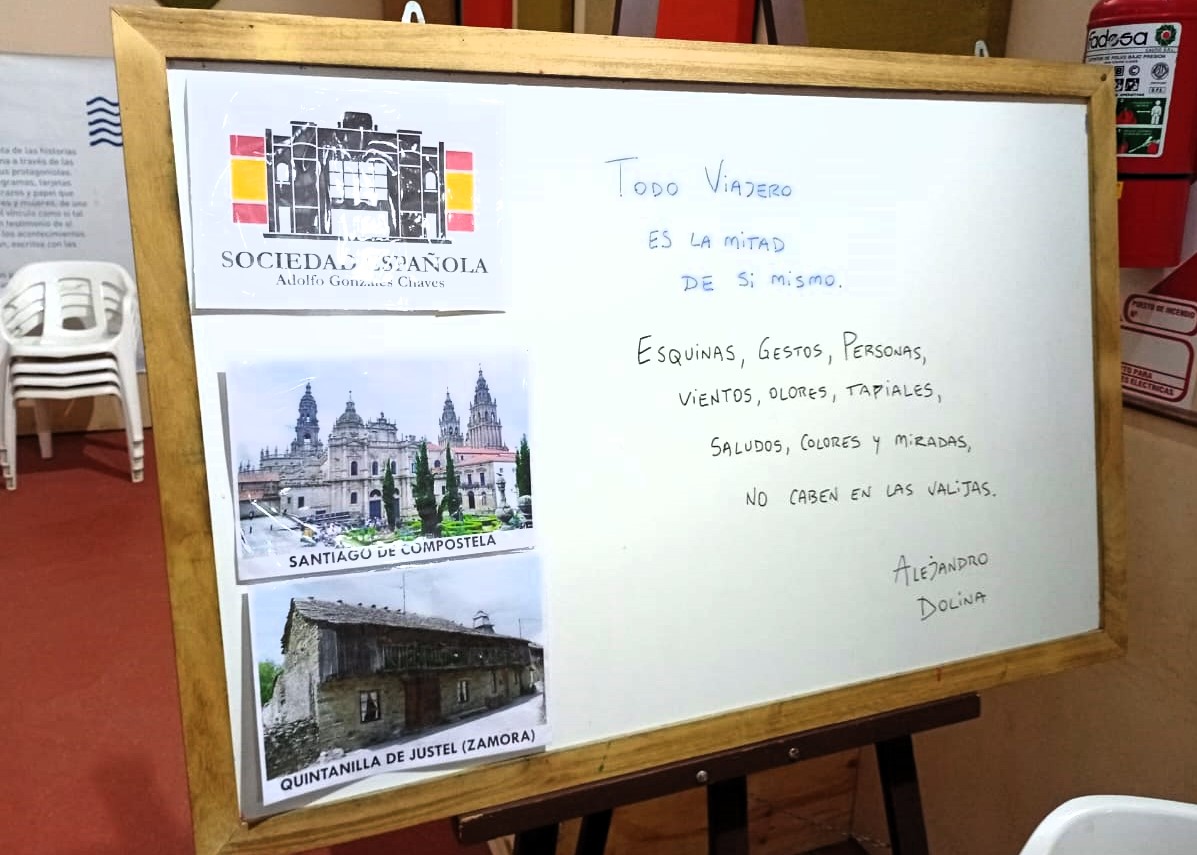 SOCIEDAD ESPAÑOLA
Adolfo Gonzales Chaves
SANTIAGO DE COMPOSTELA
QUINTANILLA DE JUSTEL (ZAMORA)
TODO VIAJERO
ES LA MITAD
DE SI MISMO.
ESQUINAS, GESTOS, PERSONAS,
VIENTOS, OLORES, TAPIALES,
SALUDOS, COLORES Y MIRADAS,
NO CABEN EN LAS VALIJAS.
ALEJANDRO
DOLINA
ta de las historias
na a través de las
us protagonistas.
gramas, tarjetas
razos y papel que
es y mujeres, de uno
l vínculo como si tal
n testimonio de sí
los acontecimientos
n, escritos con las
fadesa
PUESTO DE INCENDIO
Nº
TO PARA
ES ELECTRICAS